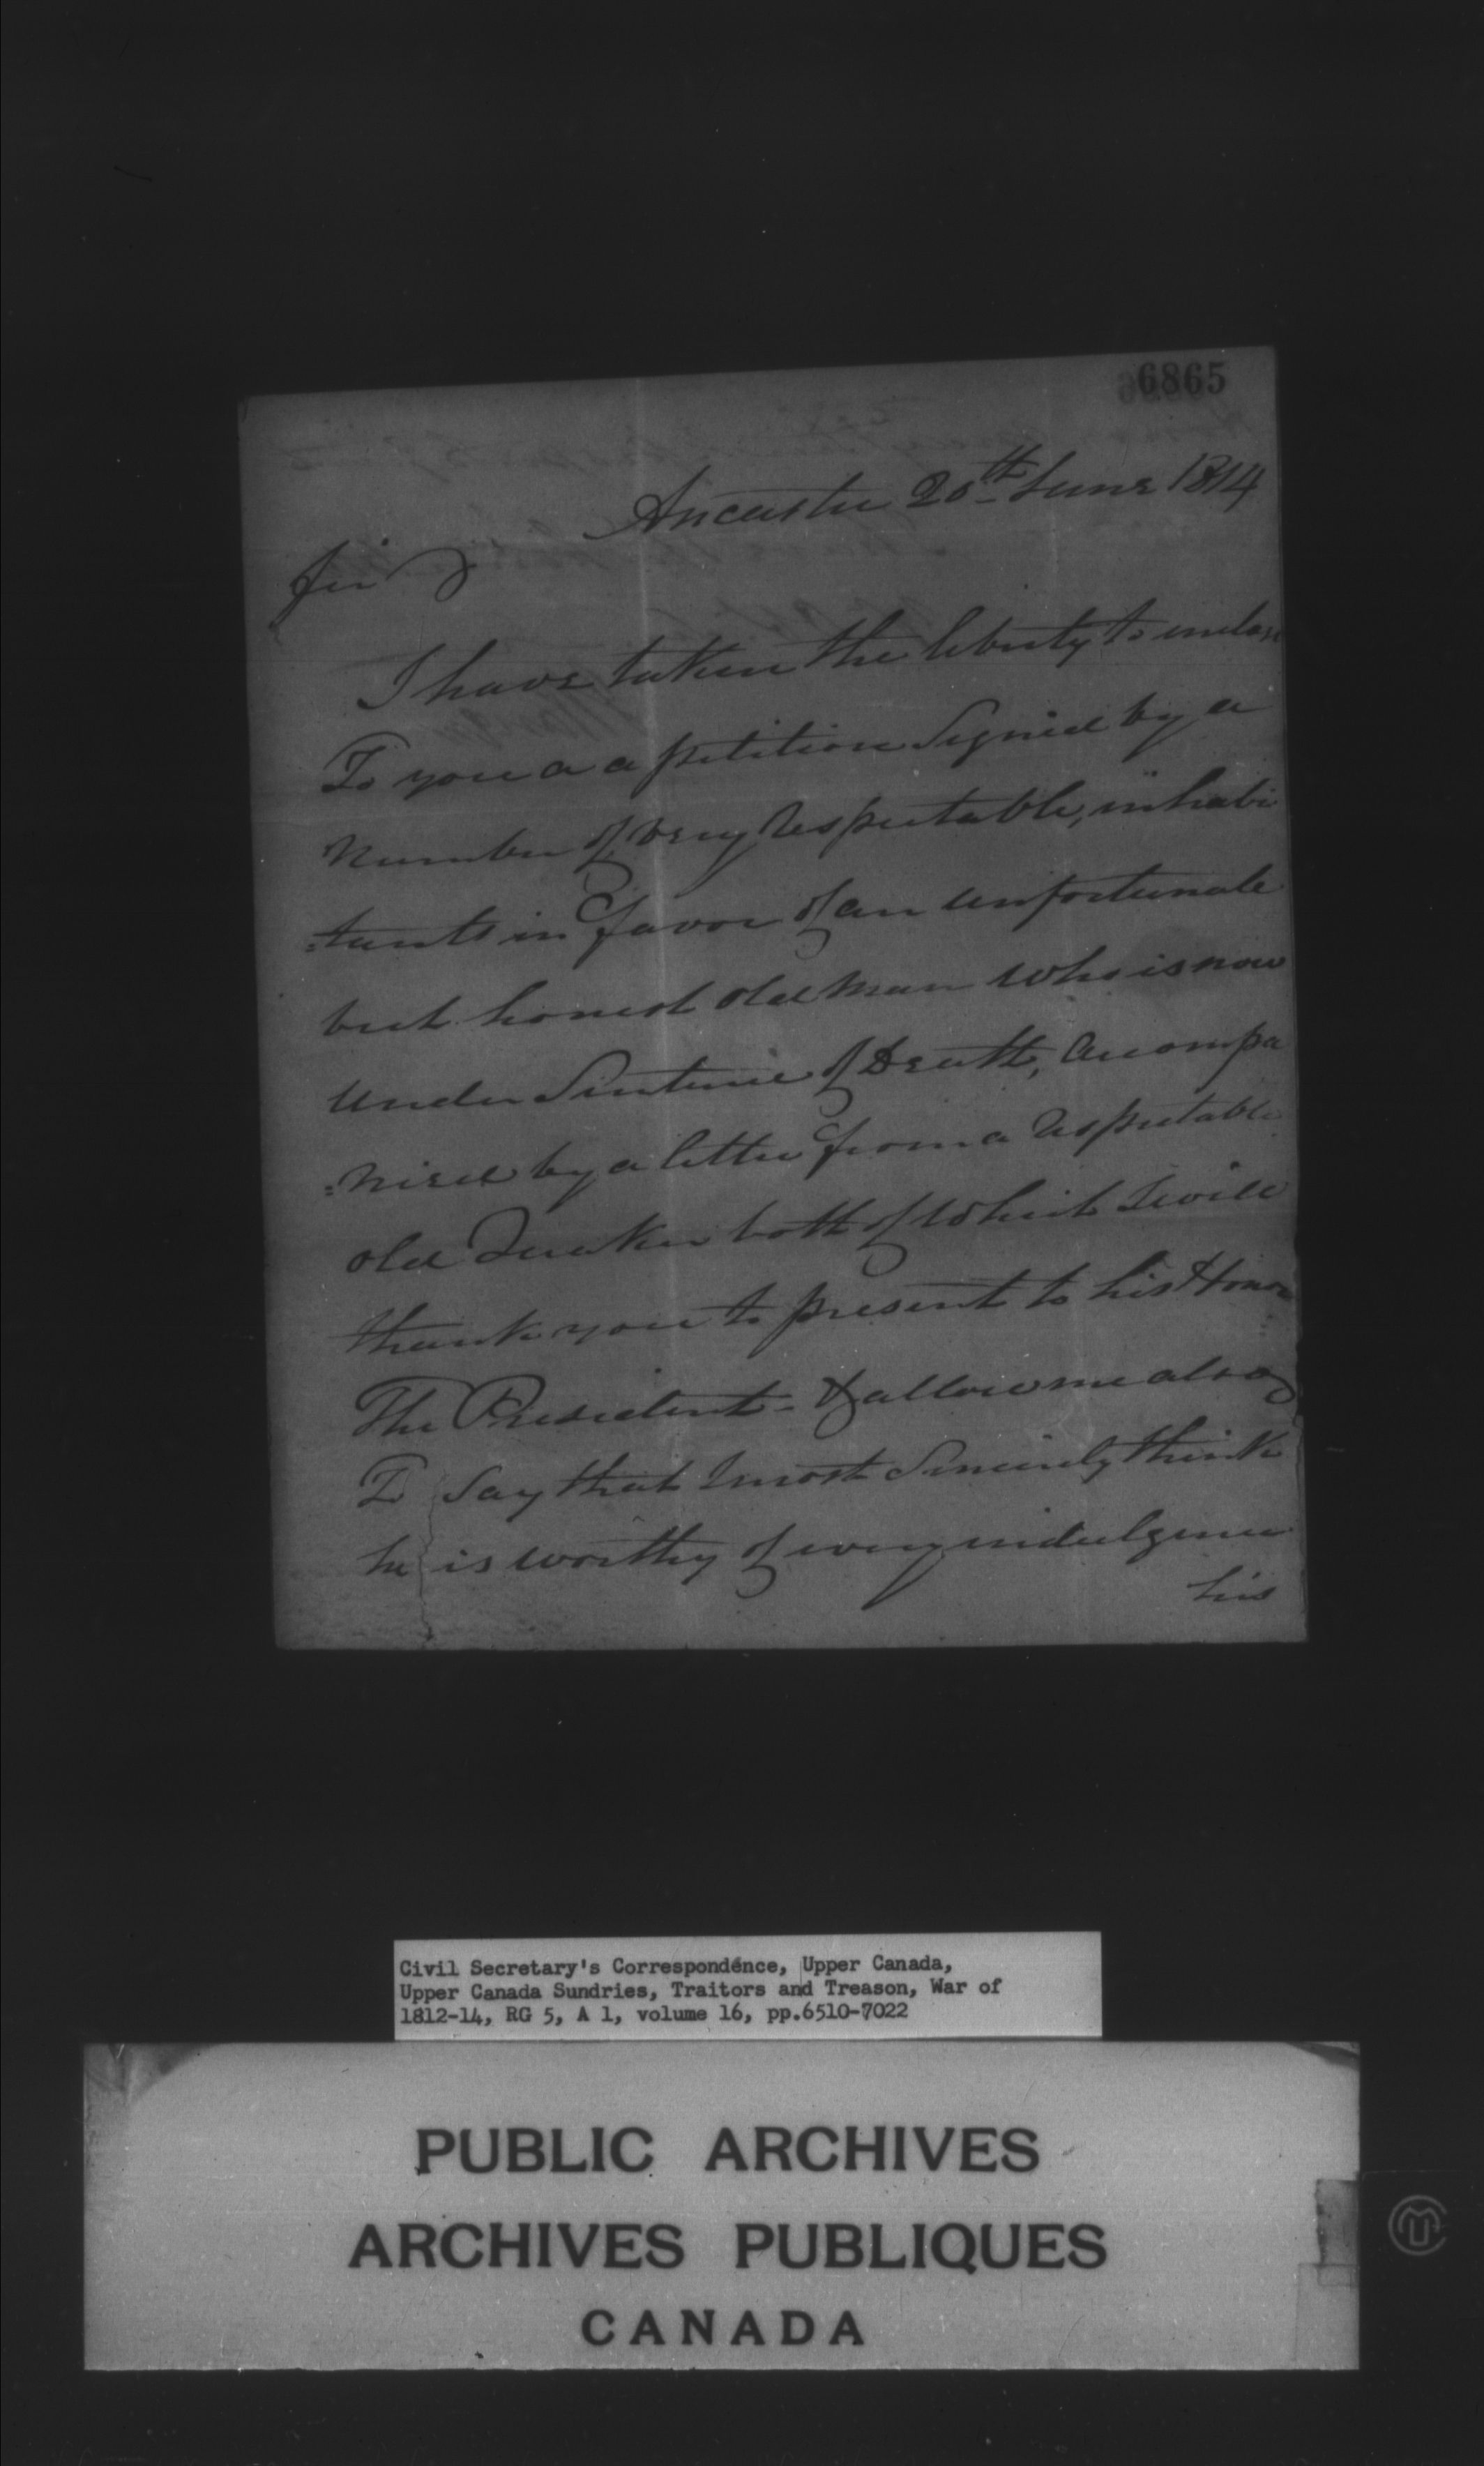 6865
Ancaster 20th June 1814
Sir
I have taken the liberty to inclose
To you a a petition Signed by a
Number of very Respectable, inhabi
=tants in favor of an unfortunate
but honest old man who is now
under Sentence of Death, accompa
=nied by a letter from a Respectable
old Quaker both of which I will
thank you to present to his Honor
The President - & allow me also
To Say that I most Sincerely think
he is worthy of every indulgence
his
Civil Secretary's Correspondence, Upper Canada,
Upper Canada Sundries, Traitors and Treason, War of
1812-14, RG 5, A 1, volume 16, pp.6510-7022
PUBLIC ARCHIVES
ARCHIVES PUBLIQUES
CANADA